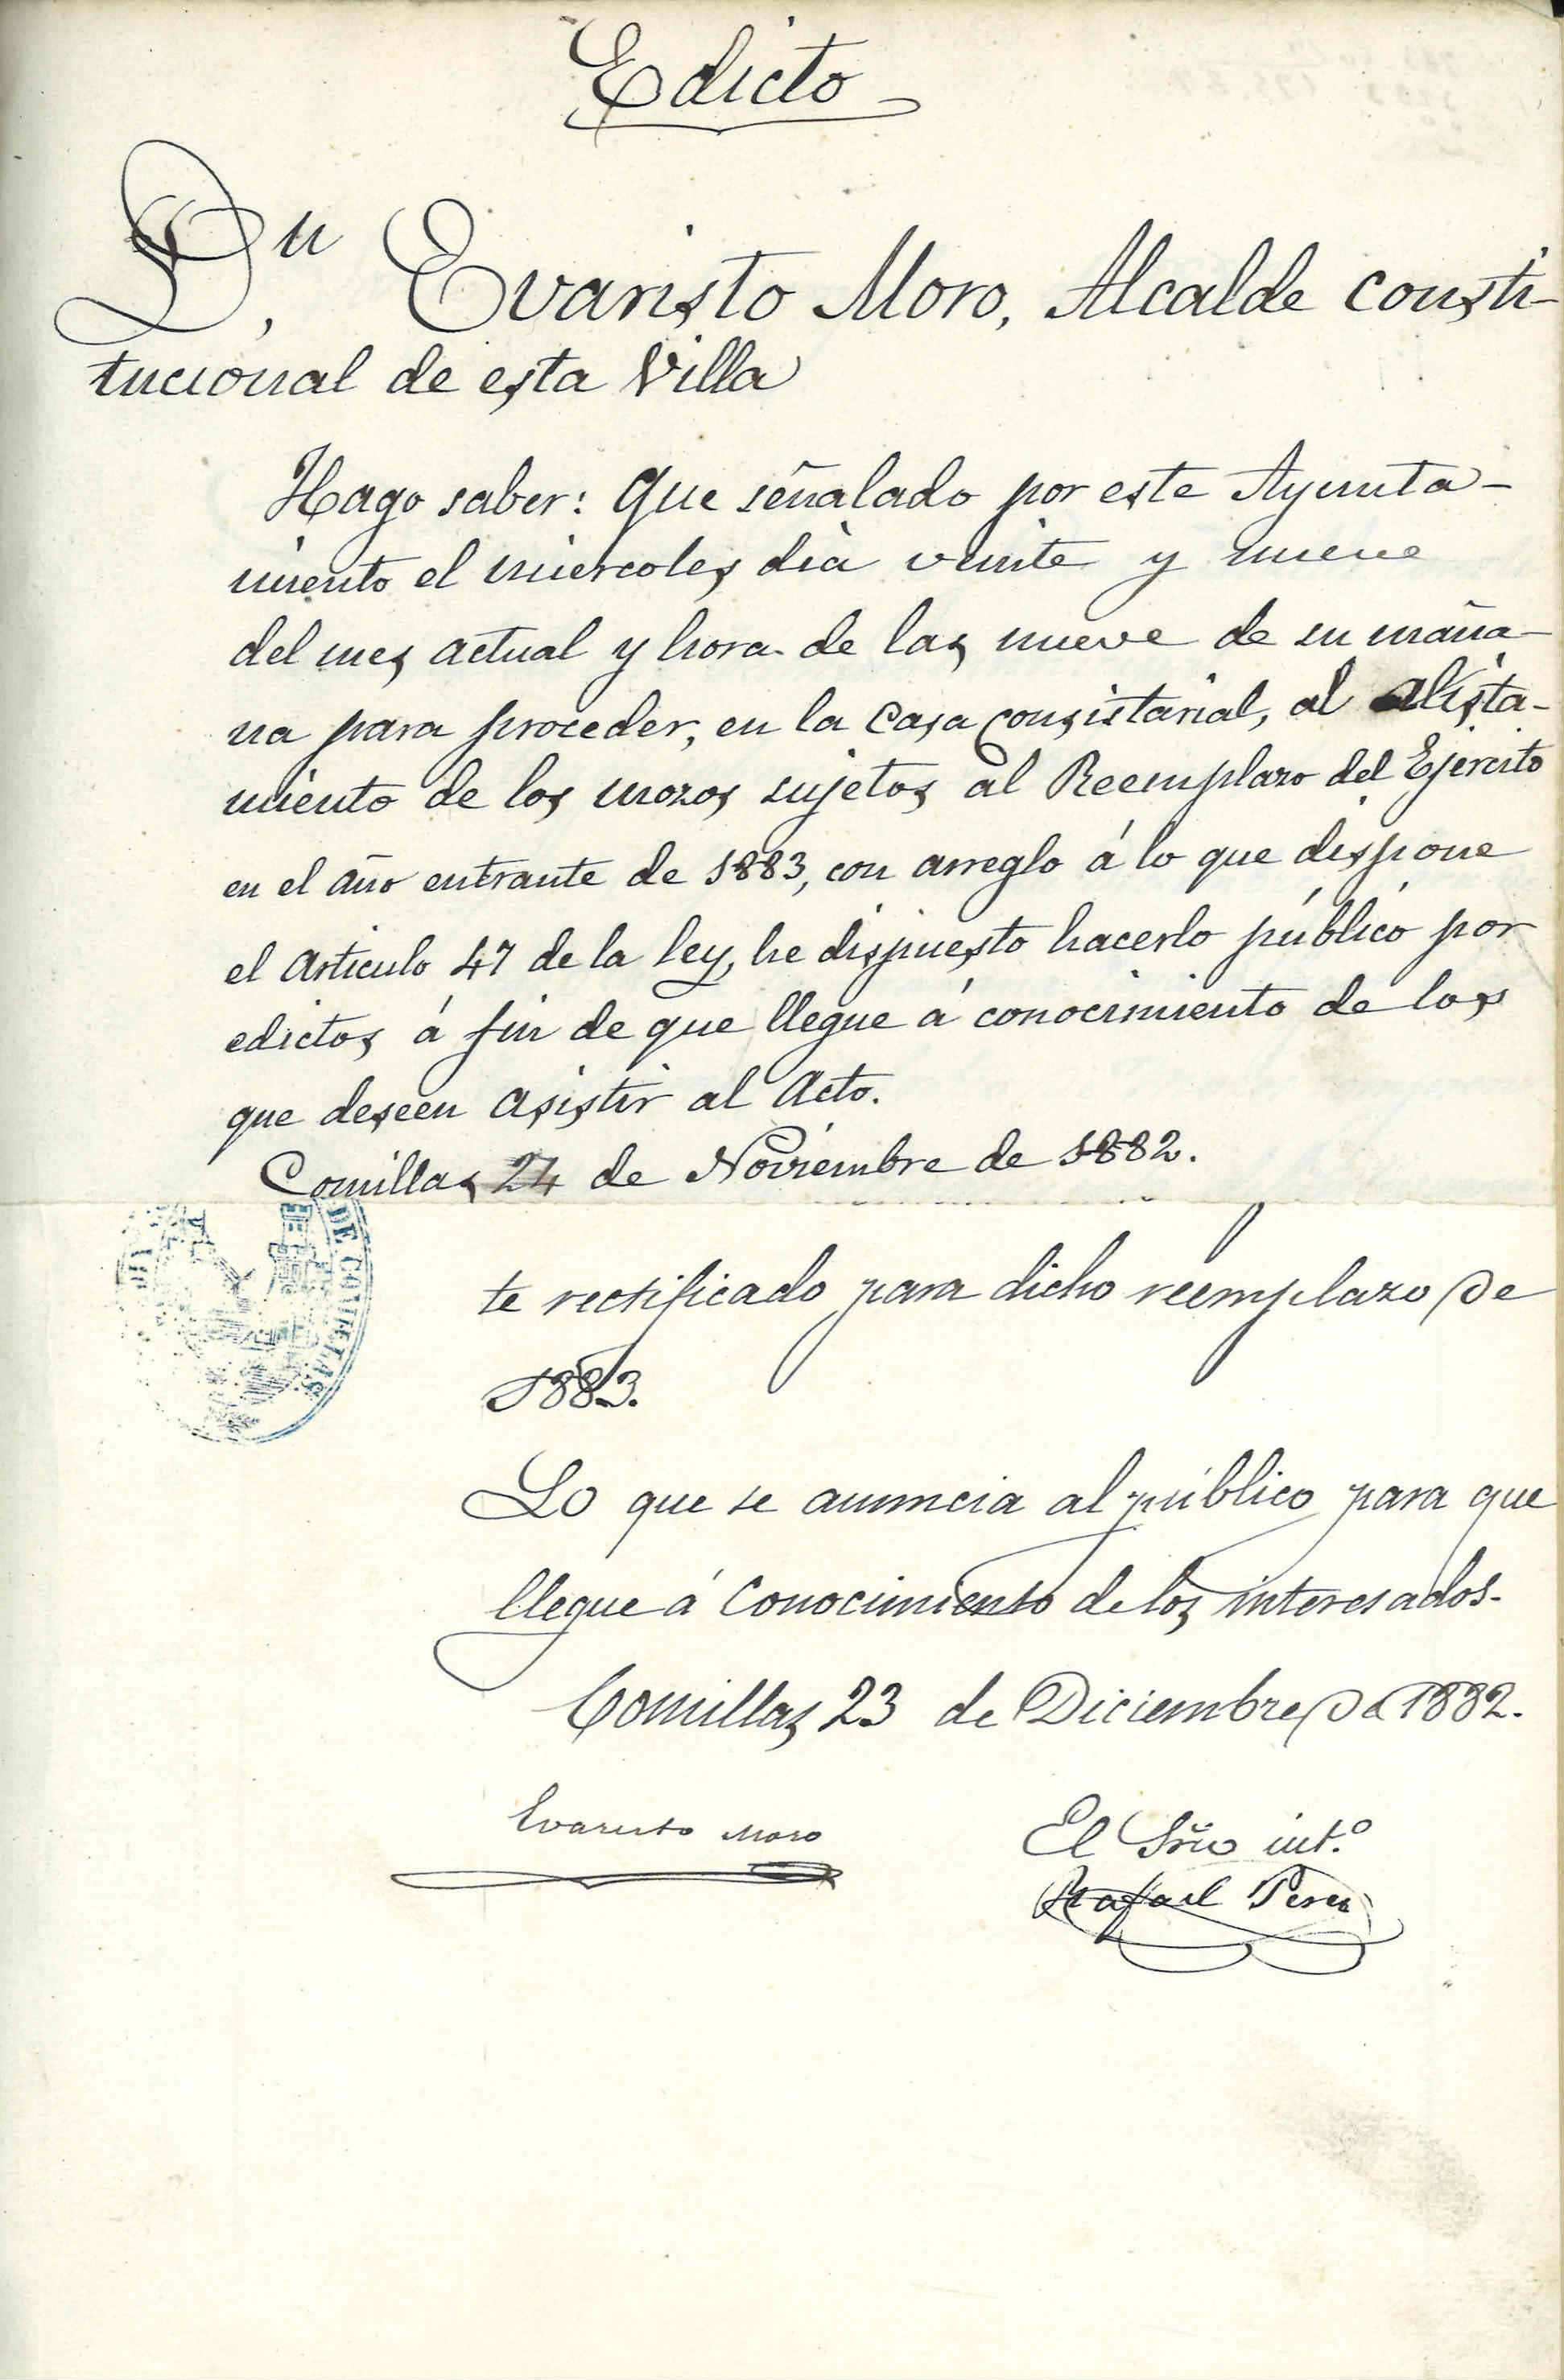 Edicto
Dn, Evaristo Moro, Alcalde consti-
tucional de esta Villa
Hago saber: Que señalado por este Ayunta-
miento el miercoles dia veinte y nueve
del mes actual y hora de las nueve de su maña-
na para proceder, en la Casa consistorial, al alista-
miento de los mozos sujetos al Reemplazo del Ejercito
en el año entrante de 1883, con arreglo á lo que dispone
el Articulo 47 de la ley, he dispuesto hacerlo público por
edictos á fin de que llegue á conocimiento de los
que deseen asistir al Acto.
Comillas 24 de Noviembre de 1882.
DE COMILLAS
te rectificado para dicho reemplazo de
1883.
Lo que se anuncia al público para que
llegue á Conocimiento de los interesados.
Comillas 23 de Diciembre de 1882.
Evaristo Moro
El Srio int.º
Rafael Perez